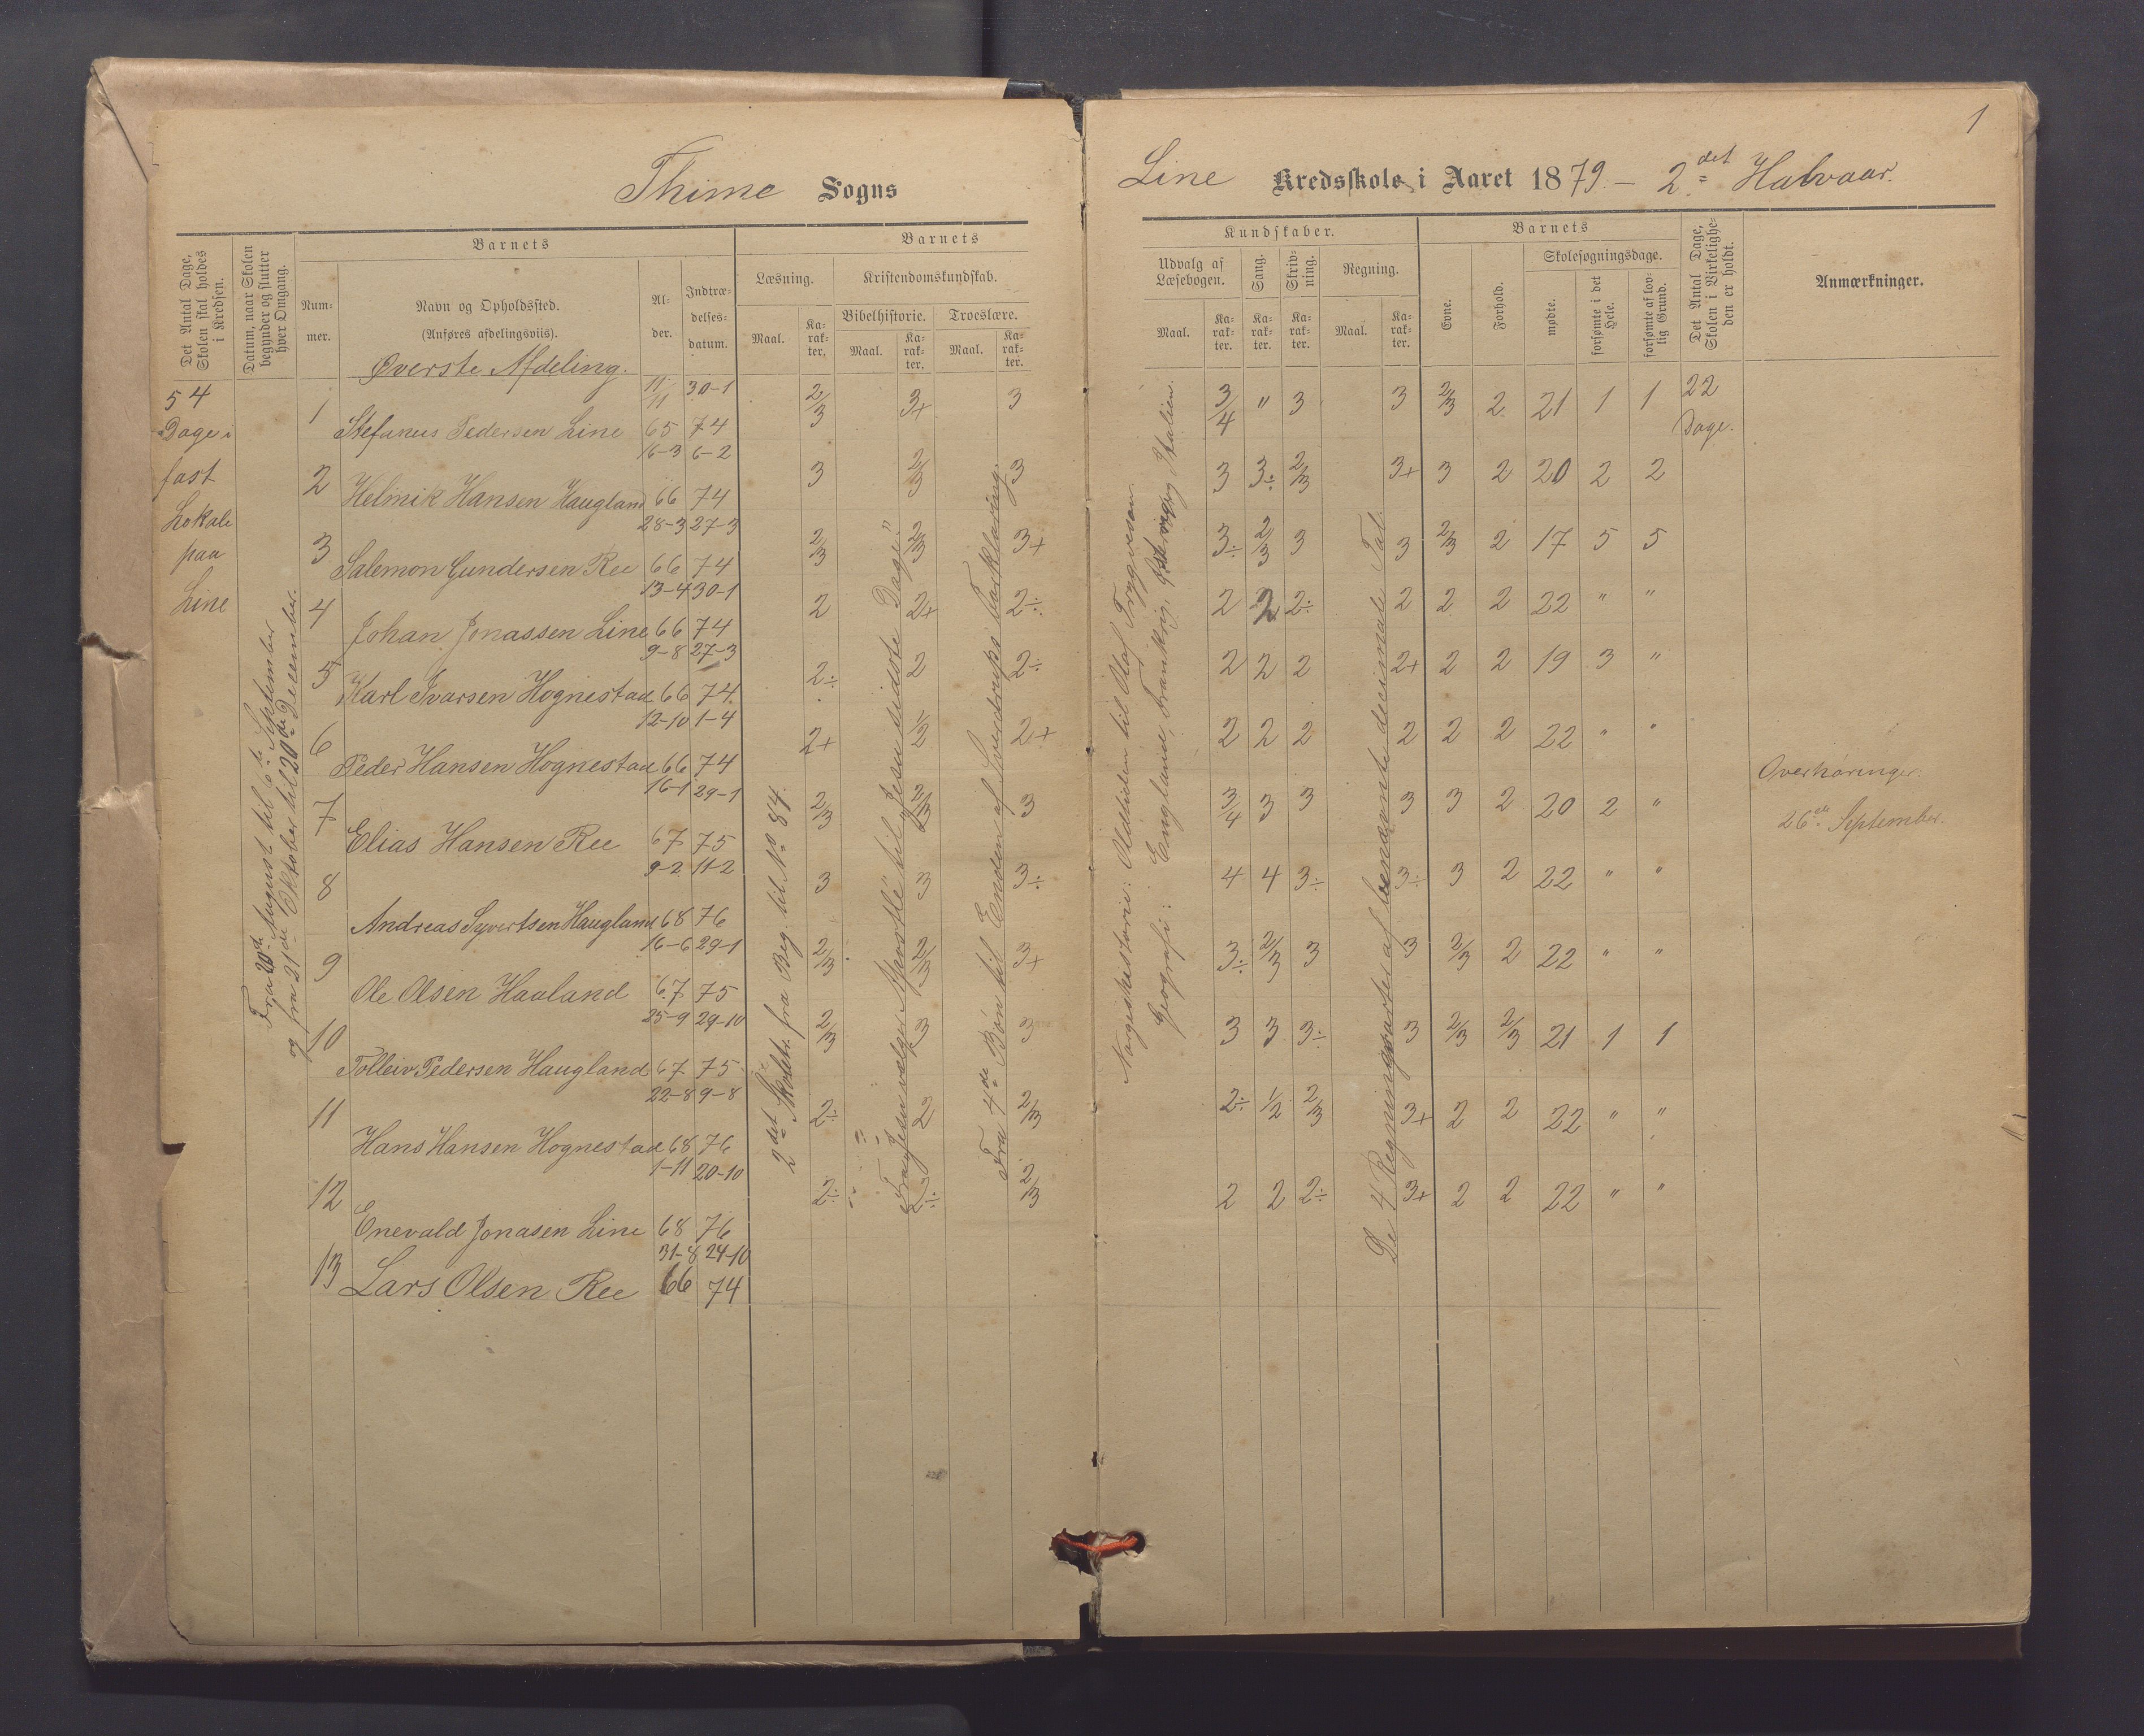 1
Thime Sogns
Line Kredsskole i Aaret 1879. – 2det Halvaar.
Det Antal Dage, Skolen skal holdes i Kredsen.
Datum, naar Skolen begynder og slutter hver Omgang.
Barnets
Nummer.
Navn og Opholdssted.
(Anføres afdelingsviis).
Alder.
Indtrædelsesdatum.
Barnets
Læsning.
Kristendomskundskab.
Bibelhistorie.
Troeslære.
Maal.
Karakter.
Maal.
Karakter.
Maal.
Karakter.
Kundskaber.
Udvalg af Læsebogen.
Sang.
Skrivning.
Regning.
Maal.
Karakter.
Karakter.
Karakter.
Maal.
Karakter.
Barnets
Evne.
Forhold.
Skolesøgningsdage.
mødte.
forsømte i det Hele.
forsømte af lovlig Grund.
Det Antal Dage, Skolen i Virkeligheden er holdt.
Anmærkninger.
Øverste Afdeling.
54 Dage i fast Lokale paa Line
Fra 20de August til 6te September
og fra 21de Oktober til 20de December.
1 Stefanus Pedersen Line 11/11 65 30-1 74 2/3 3+ 3 3/4 " 3 3 2/3 2 21 1 1 22 Dage.
2 Helmik Hansen Haugland 16-3 66 6-2 74 3 2/3 3 3 3÷ 2/3 3+ 3 2 20 2 2
3 Salemon Gundersen Ree 28-3 66 27-3 74 2/3 2/3 3+ 3÷ 2/3 3 3 2/3 2 17 5 5
4 Johan Jonassen Line 13-4 66 30-1 74 2 2+ 2÷ 2 2 2÷ 2 2 2 22 " "
5 Karl Ivarsen Hognestad 9-8 66 27-3 74 2÷ 2 2÷ 2 2 2 2+ 2 2 19 3 "
6 Peder Hansen Hognestad 12-10 66 1-4 74 2+ 1/2 2+ 2 2 2 2 2 2 22 " "
7 Elias Hansen Ree 16-1 67 29-1 75 2/3 2/3 3 3/4 3 3 3 3 2 20 2 "
8 Andreas Syvertsen Haugland 9-2 68 11-2 76 3 3 3÷ 4 4 3÷ 3÷ 3 2 22 " "
9 Ole Olsen Haaland 16-6 67 29-1 75 2/3 2/3 3+ 3÷ 2/3 3 3 2/3 2 22 " "
10 Tolleiv Pedersen Haugland 25-9 67 29-10 75 2/3 3 3 3 3 3÷ 3 2/3 2/3 21 1 1
11 Hans Hansen Hognestad 22-8 68 9-8 76 2÷ 2 2/3 2÷ 1/2 2/3 3+ 2 2 22 " "
12 Enevald Jonasen Line 1-11 68 20-10 76 2÷ 2÷ 2/3 2 2 2÷ 3+ 2 2 22 " "
13 Lars Olsen Ree 31-8 66 24-10 74
2det Skoletr. fra Beg. til No 84.
Fra „Jesu vælger Apostle" til „Jesu sidste Dage"
Fra 4de Bøn til Enden af Sverdrups Forklaring.
Norgeshistorie: Oldtiden til Olaf Trygvesøn.
Geografi: England, Frankrig, og Italien.
De 4 Regningsarter af benævnte decimale Tal.
Overhøringer:
26de September.